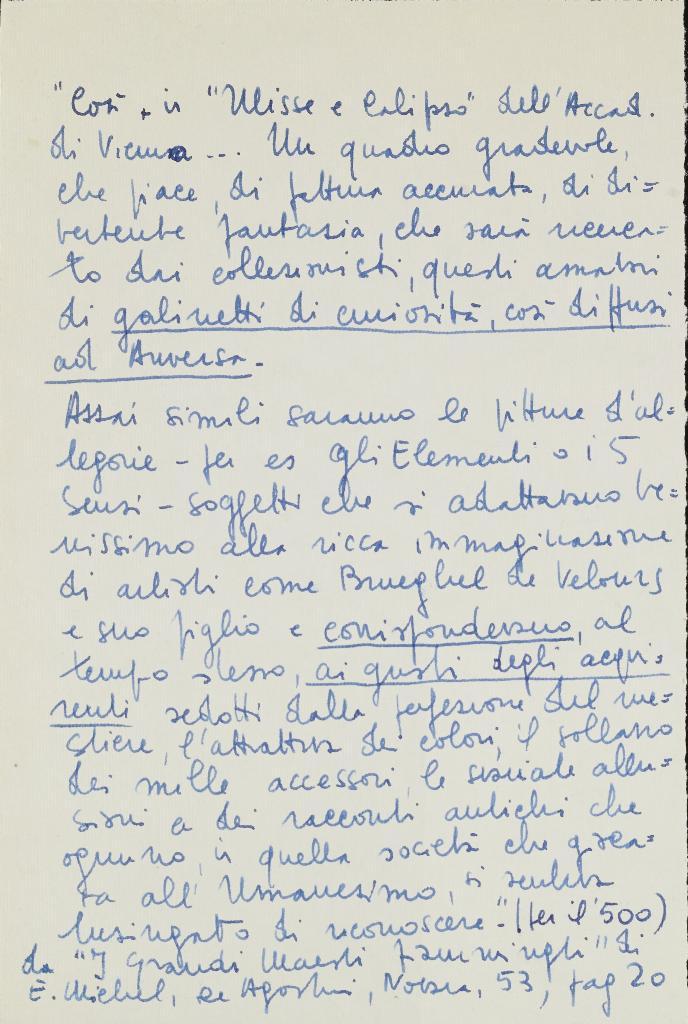 "Così, in "Ulisse e Calipso" dell'Accad.
di Vienna ... Un quadro gradevole,
che piace, di fattura accurata, di di=
vertente fantasia, che sarà ricerca=
to dai collezionisti, questi amatori
di gabinetti di curiosità, così diffusi
ad Anversa.
Assai simili saranno le pitture d'al=
legorie - per es gli Elementi o i 5
Sensi - soggetti che si adattavano be=
nissimo alla ricca immaginazione
di artisti come Brueghel de Velours
e suo figlio e corrispondevano, al
tempo stesso, ai gusti degli acqui=
renti sedotti dalla perfezione del me=
stiere, l'attrattiva dei colori, il sollazzo
dei mille accessori, le svariate allu=
sioni a dei racconti antichi che
ognuno, in quella società che
ta all'Umanesimo, si sentiva
lusingato di riconoscere". (per il '500)
da "I Grandi Maestri fiamminghi" di
E. Michel, De Agostini, Novara, 53, pag 20